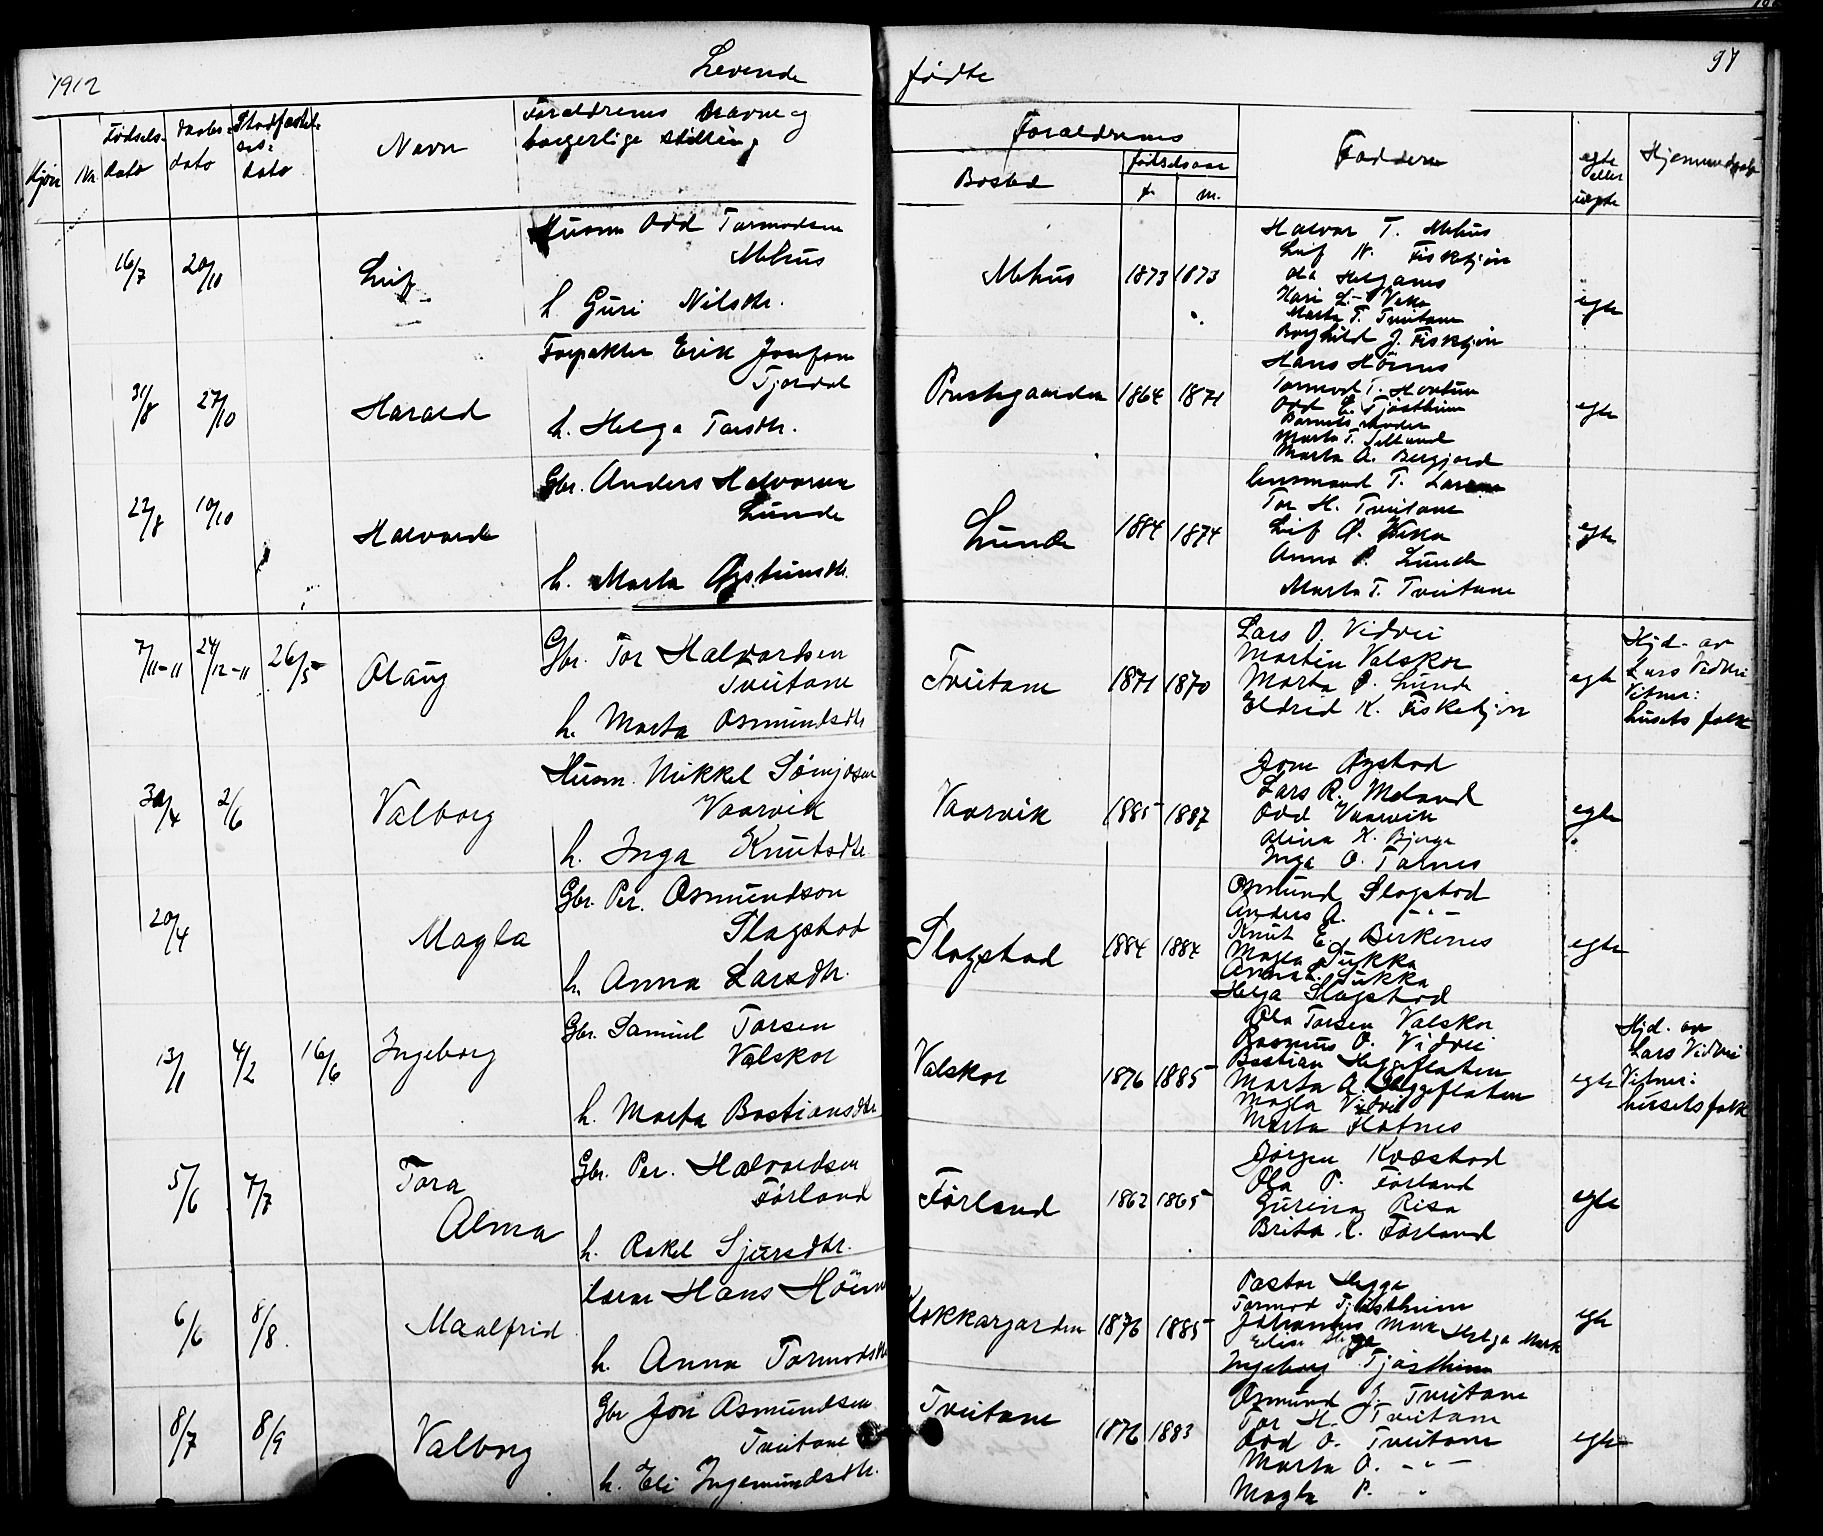 1912 Levende fødte 97
Kjøn Nr Fødsels-dato Daabs-dato dato Navn Forældrenes Navne og borgerlige stilling
Forældrenes Bosted fødselsaar f. m. Faddere egte eller uegte Hjemmedøpt
16/7 20/10 Leif
Husm Odd Tormodsen
Mehus
h Guri Nilsdtr.
Mehus 1873 1873
Halvor T. Mehus
Leif N. Fisketjøn
Ola Helganes
Kari L. Veka
Marta T. Tveitane
Borghild J. Fisketjøn
egte
31/8 27/10 Harald
Forpakter Erik Josefsen
Tjordal
h. Helga Torsdtr.
Prestegaarden 1864 1871
Hans Höines
Tormod T. Hovtun
Odd E. Tjøstheim
Barnets moder
Marta T. Selland
Marta A. Bergjord
egte
22/8 10/10 Halvard
Gbr. Anders Halvorsen
Lunde
h. Marta Øysteinsdtr.
Lunde 1884 1874
Lensmand T. Larsen
Tor H. Tveitane
Leif Ø. Veka
Anna P. Lunde
Marta T. Tveitane
egte
7/11-11 24/12-11 26/5 Olaug
Gbr. Tor Halvardsen
Tveitane
h. Marta Osmundsdtr
Tveitane 1871 1870
Lars O. Vidvei
Martin Valskor
Marta P. Lunde
Eldrid K. Fisketjøn
egte
Hjd. av
Lars Vidvei
Vitner:
husets folk
30/4 2/6 Valborg
Husm. Mikkel
Vaarvik
h. Inga Knutsdtr
Vaarvik 1885 1887
Jone Øystad
Lars R. Meland
Odd Vaarvik
Olina K. Bjerga
Inga O. Tarnes
egte
20/4 Magla
Gbr. Per. Osmundson
Slagstad
h. Anna Larsdtr.
Slagstad 1884 1884
Osmund Slagstad
Anders A. - " -
Knut E. Berkenes
Magla Sukka
Anna L. Sukka
Helga Slagstad
egte
13/1 4/2 16/6 Ingeborg
Gbr. Samuel Torsen
Valskor
h. Marta Bastiansdtr
Valskor 1876 1885
Ola Torsen Valskor
Rasmus O. Vidvei
Bastian Heggeflaten
Marta A. Heggeflaten
Magla Vidvei
Marta Flatnes
egte
Hjd. av
Lars Vidvei
Vitner:
husets folk
5/6 7/7 Tora
Alma
Gbr. Per. Halvardsen
Förland
h. Rakel Sjursdtr.
Förland 1862 1865
Jørgen Kvæstad
Ola P. Förland
Gurina Risa
Brita R. Förland
egte
6/6 8/8. Maalfrid
Lærer Hans Höines
h. Anna Tormodsdtr
Klokkargarden 1876 1885
Pastor Hegge
Tormod Tjøstheim
Johannes Moe Helga Mark
Elise Hegge
Ingeborg Tjøstheim
egte
8/7 8/9 Valborg
Gbr Jon Osmundsen
Tveitane
h. Eli Ingemundsdtr.
Tveitane 1876 1883
Osmund J. Tveitane
Tor H. Tveitane
Odd O. Tveitane
Marta O. - " -
Magla P. "
egte